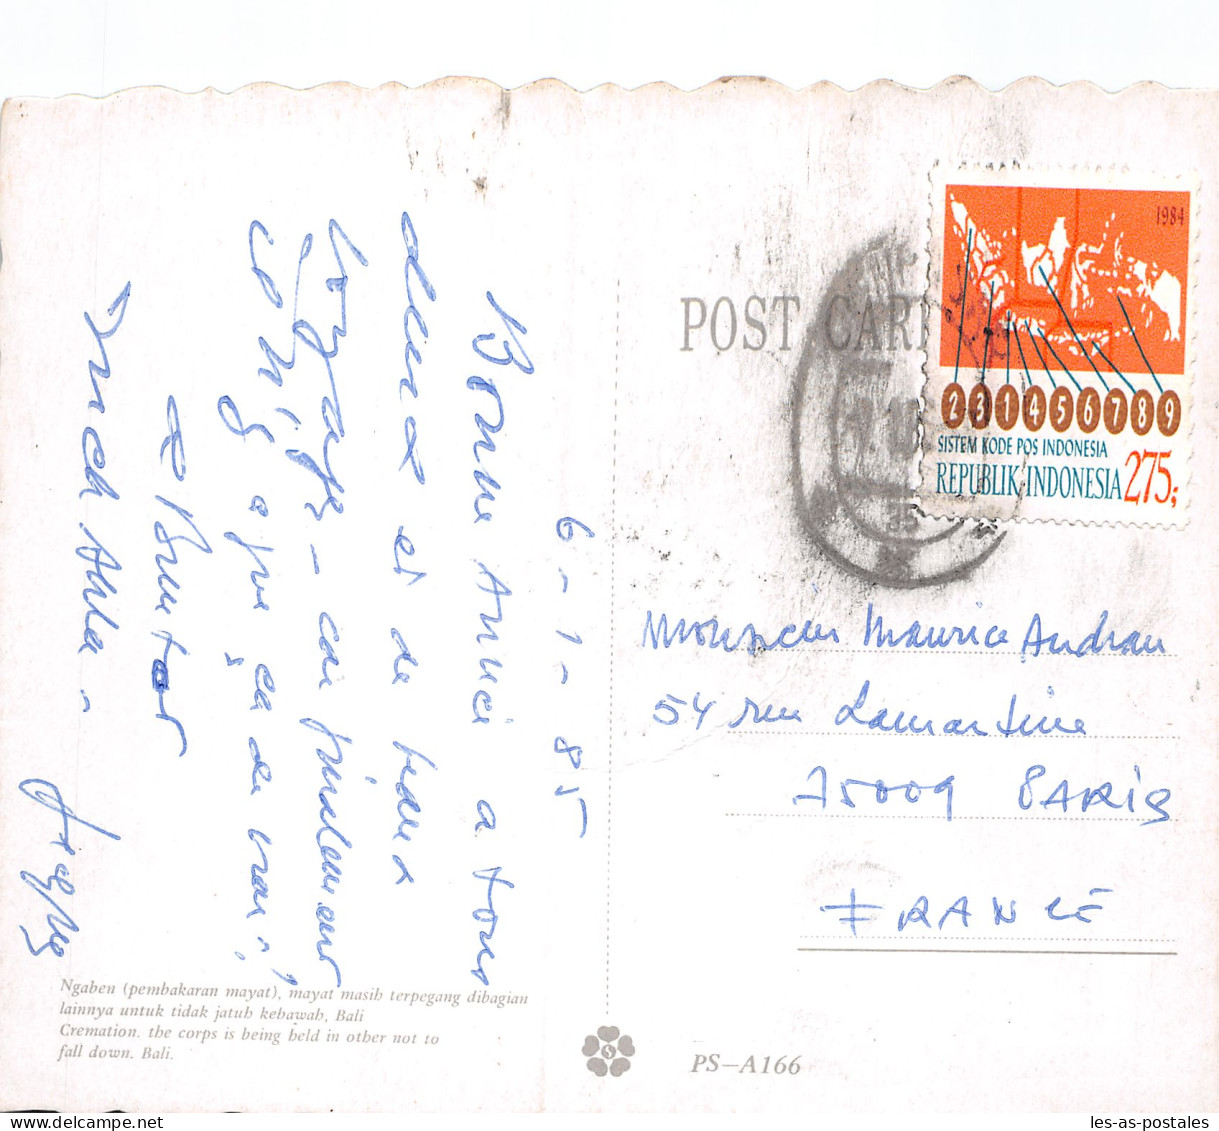 6-1-85
Bonne Année a tous
deux et de beaux
voyages - car finalement
co m'
y a que ça de vrai!
a Bientot
Inch Allah -
POST CARD
1984
2 3 1 4 5 6 7 8 9
SISTEM KODE POS INDONESIA
REPUBLIK INDONESIA 275;
85
Monsieur Maurice Andrau
54 rue Lamartine
75009 PARIS
FRANCE
Ngaben (pembakaran mayat), mayat masih terpegang dibagian
lainnya untuk tidak jatuh kebawah, Bali
Cremation. the corps is being held in other not to
fall down. Bali.
PS-A166
les-as-postales